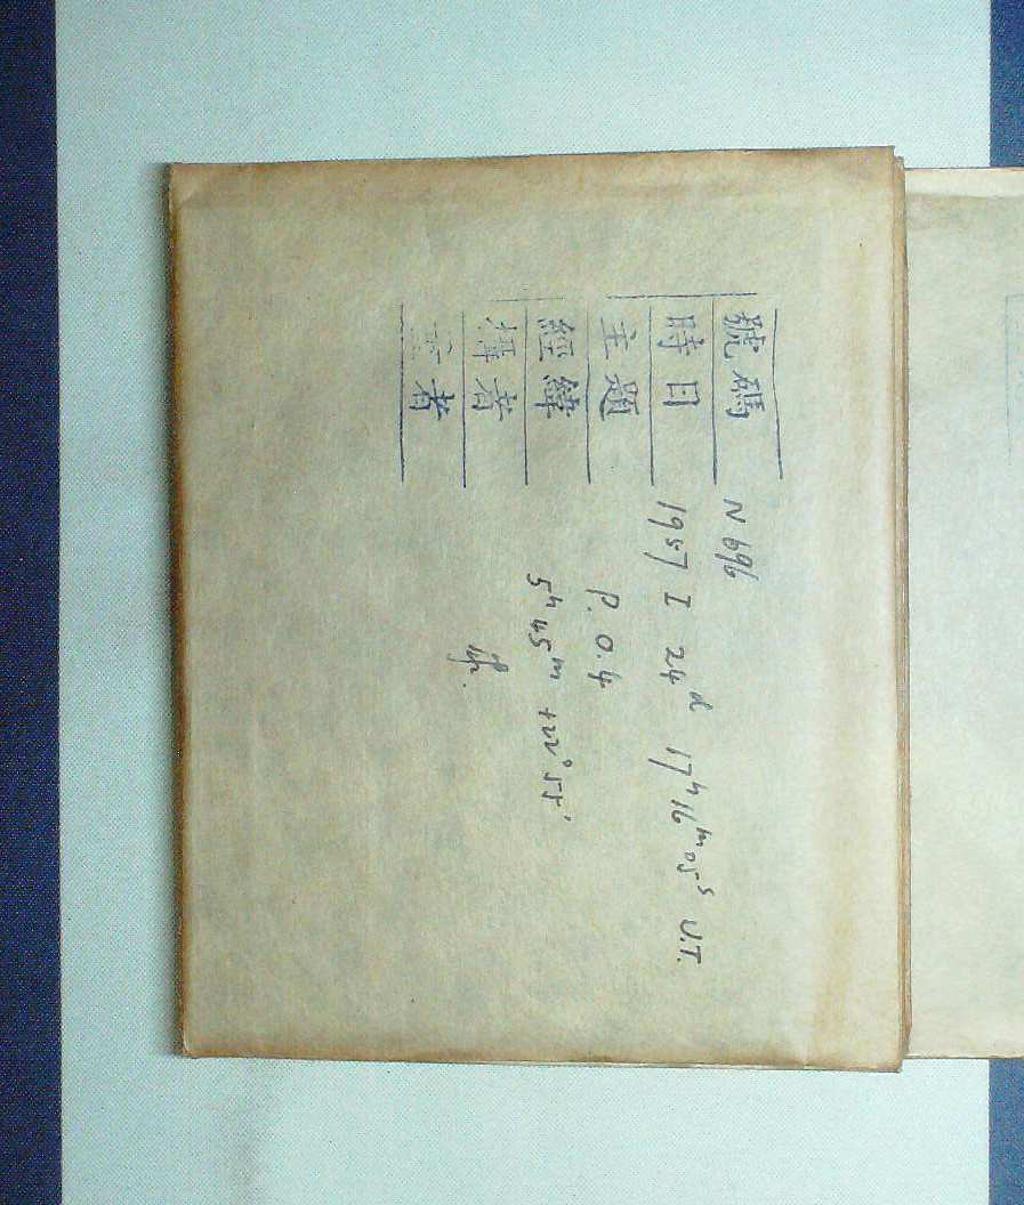 號碼 N 696
時日 1957 I 24d 17h 16m 05s U.T.
主題 P.O.4
經緯 5h 45m +22° 55'
撮者
者